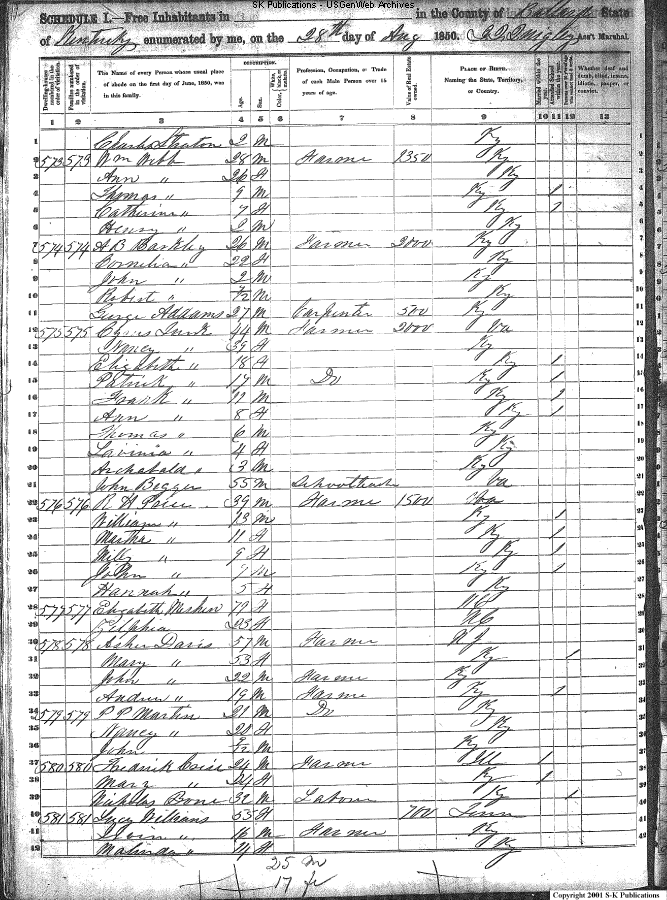 SK Publications - USGenWeb Archives
SCHEDULE I.—Free Inhabitants in in the County of State
of Kentucky enumerated by me, on the 28th day of Aug 1850. Ass't Marshal.
Dwelling-houses numbered in the order of visitation.
Families numbered in the order of visitation.
The Name of every Person whose usual place of abode on the first day of June, 1850, was in this family.
DESCRIPTION.
Age.
Sex.
Profession, Occupation, or Trade of each Male Person over 15 years of age.
Value of Real Estate owned.
PLACE OF BIRTH.
Naming the State, Territory, or Country.
Whether deaf and dumb, blind, insane, idiotic, pauper, or convict.
1 2 3 4 5 6 7 8 9 10 11 12 13
1 Stratton 2 M Ky
2 573 573 Wm Webb 28 M Farmer 2350 Ky
3 Ann " 26 F Ky
4 Thomas " 9 M Ky 1
5 Catherine " 7 F Ky 1
6 Henry " 2 M Ky
7 574 574 A B Barkley 26 M Farmer 2000 Ky
8 Cornelia " 22 F Ky
9 John " 2 M Ky
10 Robert " M Ky
11 George Addams 27 M Carpenter 500 Ky
12 575 575 44 M Farmer 2000 Va
13 Nancy " 39 F Ky
14 Elizabeth " 18 F Ky 1
15 Patrick " 17 M Do Ky 1
16 Frank " 11 M Ky 1
17 Ann " 8 F Ky 1
18 Thomas " 6 M Ky
19 Lavinia " 4 F Ky
20 Archabald " 3 M Ky
21 John Begger 55 M Va
22 576 576 R H 39 M Farmer 1500 Va
23 William " 13 M Ky 1
24 Martha " 11 F Ky 1
25 Milly " 9 F Ky 1
26 John " 7 M Ky 1
27 Hannah " 5 F Ky
28 577 577 Elizabeth 79 F NC
29 Zilphia 23 F NC
30 578 578 Asher Davis 57 M Farmer N J
31 Mary " 53 F Ky 1
32 John " 22 M Farmer Ky
33 Andrew " 19 M Farmer Ky 1
34 579 579 P P Martin 21 M Do Ky
35 Nancy " 20 F Ky
36 John M Ky
37 580 580 Fredrick 24 M Farmer Ill 1
38 Mary " 24 F Ky 1
39 Nicholas Bone 32 M Laborer Ky 1
40 581 581 Williams 53 F 700 Tenn
41 " 16 M Farmer Ky
42 Malinda " 14 F Ky
25 M
17 fe
Copyright 2001 S-K Publications